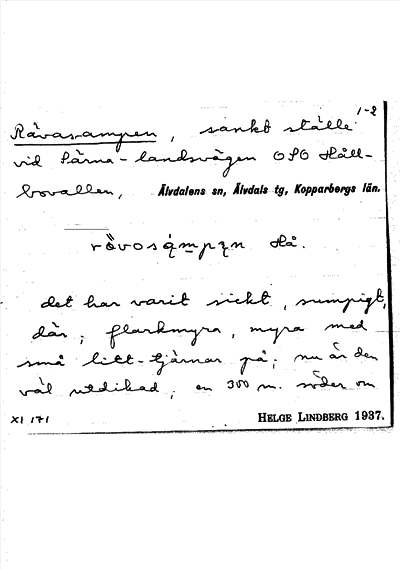 1-2
Råvasampen, sankt ställe
vid Särna-landsvägen OSO Håll-
bovallen, Älvdalens sn, Älvdals tg, Kopparbergs län.
Hå.
det har varit sickt, sumpigt,
där; flarkmyra, myra med
små litt-tjärnar på; nu är den
väl utdikad; en 300 m. söder om
XI 171
HELGE LINDBERG 1937.